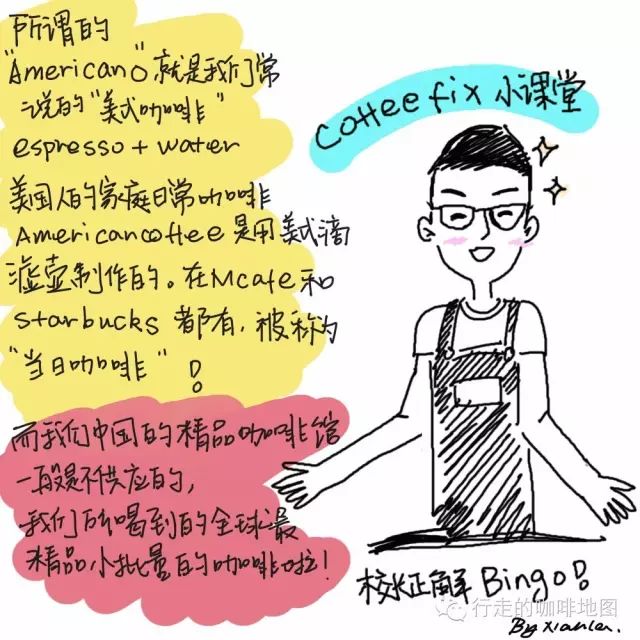 所谓的
"Americano"就是我们常
说的"美式咖啡"
espresso + water
美国人的家庭日常咖啡
American coffee 是用美式滴
滤壶制作的。在Mcafe和
starbucks 都有,被称为
"当日咖啡"!
而我们中国的精品咖啡馆
一般是不供应的,
我们所喝到的全球最
精品小批量的咖啡啦!
coffee fix 小课堂
校长正解 Bingo!
行走的咖啡地图
By xianlen.